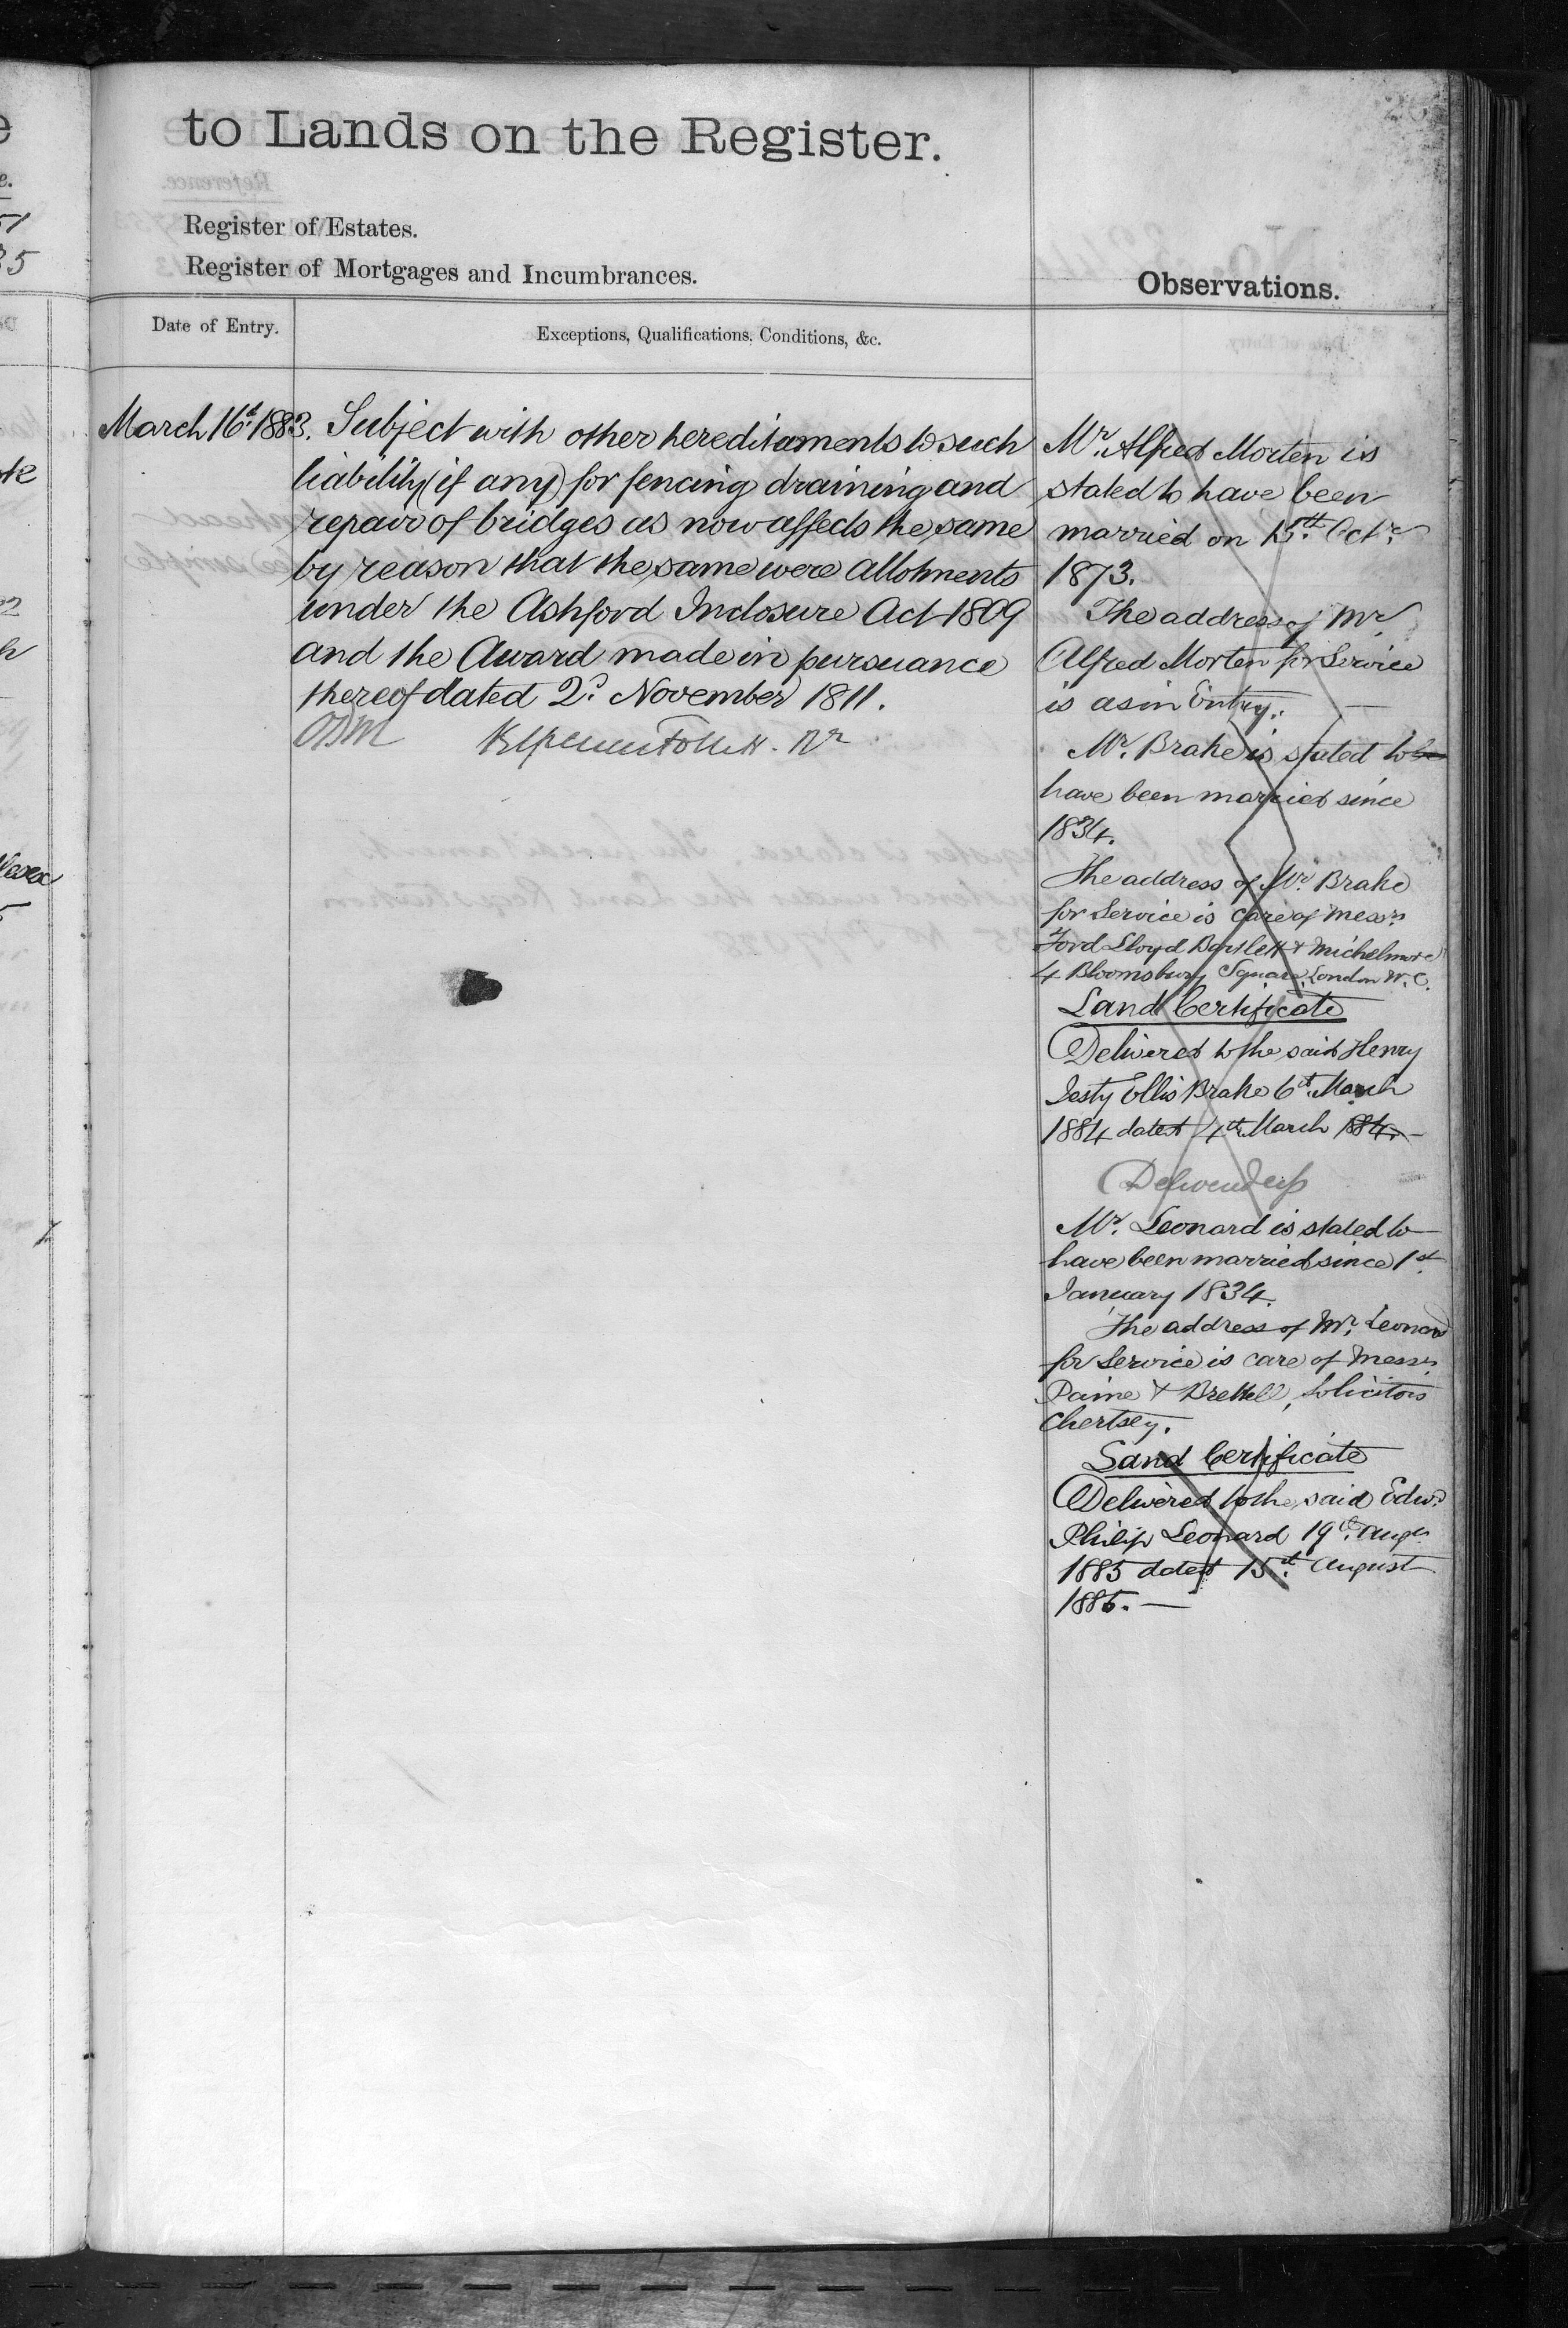 to Lands on the Register.
Register of Estates.
Register of Mortgages and Incumbrances.
Date of Entry.
Exceptions, Qualifications, Conditions, &c.
March 16th 1883. Subject with other hereditaments to such
liability (if any) for fencing draining and
repair of bridges as now affects the same
by reason that the same were allotments
under the Ashford Inclosure Act 1809
and the Award made in pursuance
thereof dated 2d November 1811.
Follett. Rr
Observations.
Mr. Alfred Morten is
stated to have been
married on 15th Octr.
1873.
The address of Mr.
Alfred Morten for Service
is as in Entry.
Mr. Brake is stated to be
have been married since
1834.
The address of Mr. Brake
for Service is care of Messrs
Ford Lloyd Bartlett & Michelmore
4 Bloomsbury Square, London W.C.
Land Certificate
Delivered to the said Henry
Jesty Ellis Brake 6th March
1884 dated 4th March 1884.
Delivered up
Mr. Leonard is stated to
have been married since 1st
January 1834.
The address of Mr. Leonard
for Service is care of Messrs
Paine & Brettell, Solicitors
Chertsey.
Land Certificate
Delivered to the said Edwd
Philip Leonard 19th Augt
1885 dated 15th August
1885.